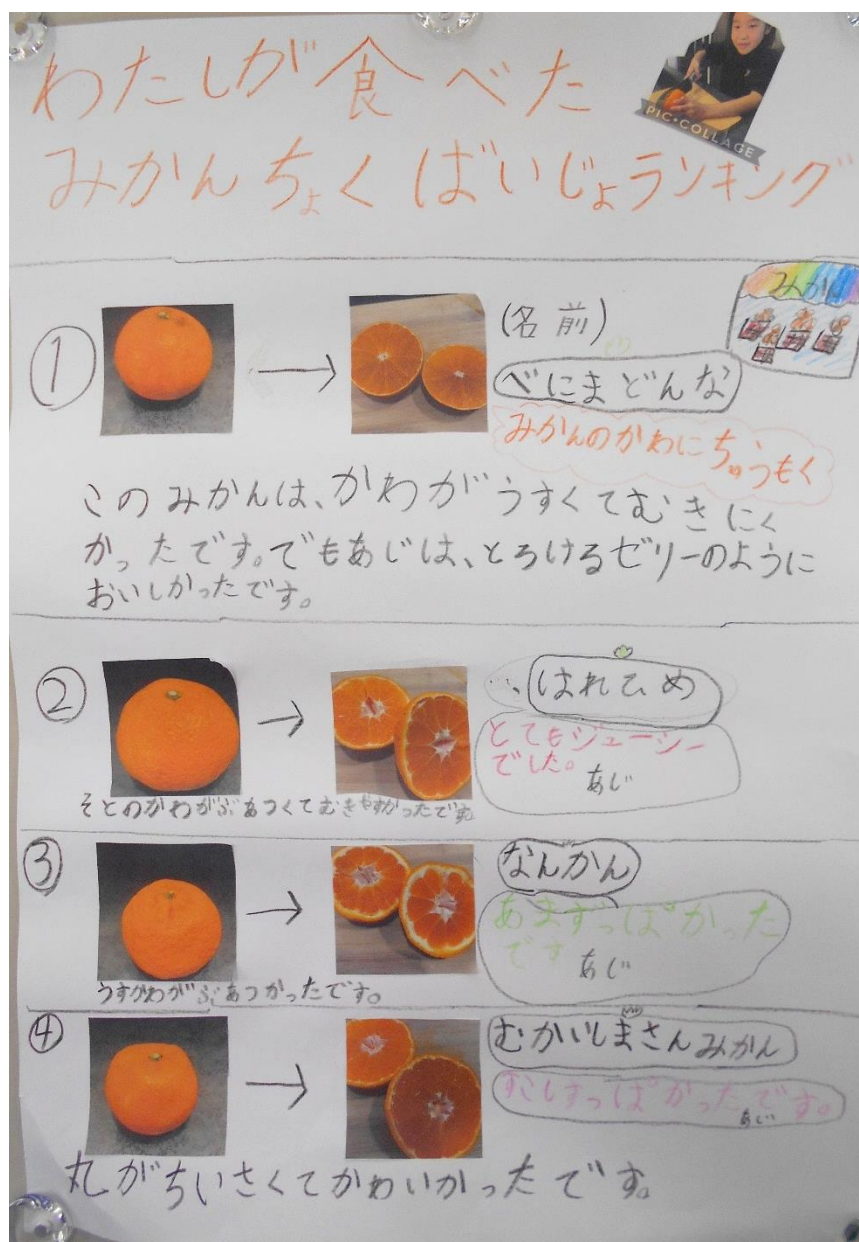 わたしが食べた
PIC・COLLAGE
みかんちょくばいじょランキング
みかん
①
(名前)
べにまどんな
みかんのかわにちゅうもく
このみかんは、かわがうすくてむきにく
かったです。でもあじは、とろけるゼリーのように
おいしかったです。
②
はれひめ
とてもジューシー
でした。
あじ
そとのかわがぶあつくてむきやすかったです。
③
なんかん
あまずっぱかった
です
あじ
うすかわがぶあつかったです。
④
むかいしまさんみかん
すこしすっぱかったです。
あじ
丸がちいさくてかわいかったです。